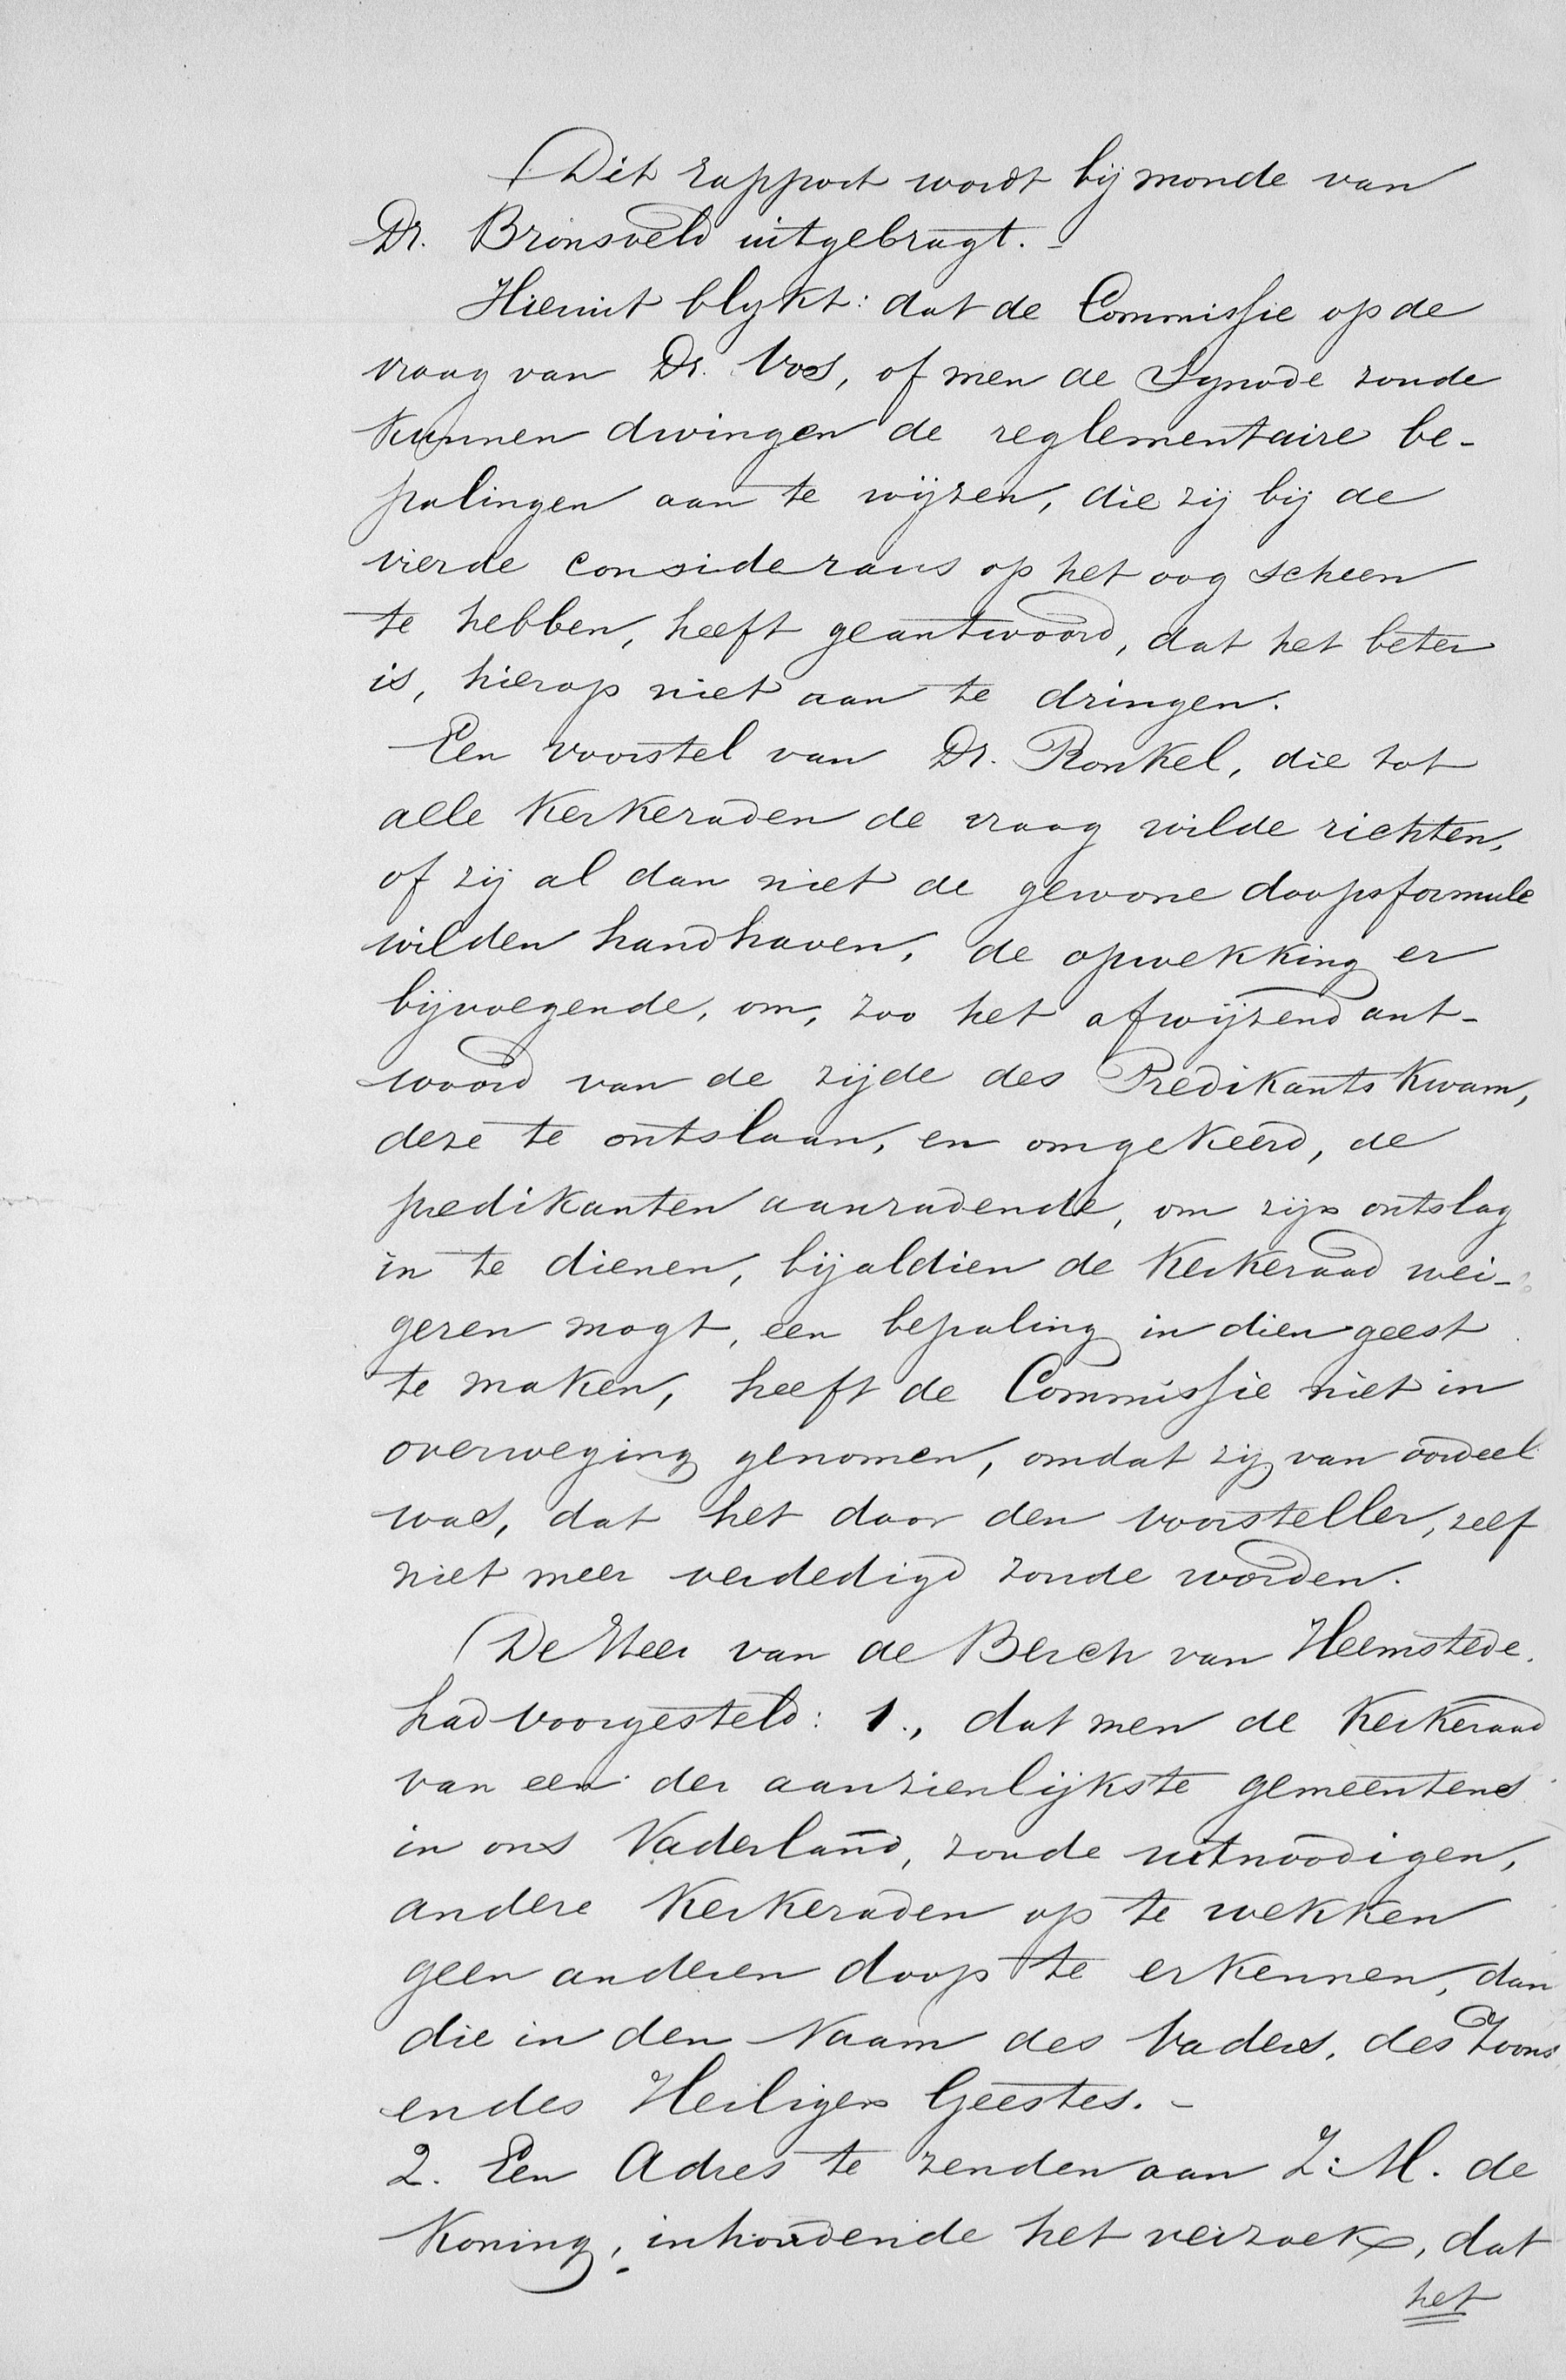 Dit rapport wordt bij monde van
Dr. Bronsveld uitgebragt. -
Hieruit blykt: dat de Commissie op de
vraag van Dr. Vos, of men de Synode zoude
kunnen dwingen de reglementaire be-
palingen aan te wijzen, die zij bij de
vierde considerans op het oog scheen
te hebben, heeft geantwoord, dat het beter
is, hierop niet aan te dringen.
Een voorstel van Dr. Ronkel, die tot
alle Kerkeraden de vraag wilde richten,
of zij al dan niet de gewone doopsformule
wilden handhaven, de opwekking er
bijvoegende, om, zoo het afwijzend ant-
woord van de zijde des Predikants kwam,
deze te ontslaan, en omgekeerd, de
predikanten aanradende, om zijn ontslag
in te dienen, bijaldien de Kerkeraad wei-
geren mogt, een bepaling in dien geest
te maken, heeft de Commissie niet in
overweging genomen, omdat zij van oordeel
was, dat het door den voorsteller, zelf
niet meer verdedigd zoude worden.
De Heer van de Berch van Heemstede.
had voorgesteld: 1., dat men de Kerkeraad
van een der aanzienlijkste gemeentens
in ons Vaderland, zoude uitnoodigen,
andere Kerkeraden op te wekken
geen anderen doop te erkennen, dan
die in den Naam des Vaders, des Zoons
en des Heiligen Geestes. -
2. Een Adres te zenden aan Z: M. de
Koning, inhoudende het verzoek, dat
het